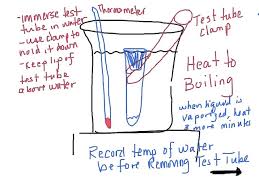 -Immerse test
tube in water
-use clamp to
hold it down
-Keep lip of
test tube
above water
Thermometer
Test tube
clamp
Heat to
Boiling
when liquid is
vaporized, heat
2 more minutes
Record temp of water
before Removing Test Tube